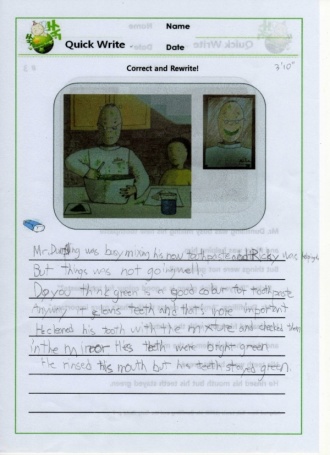 Name
Quick Write -
Date
Correct and Rewrite!
7'10"
Mr. Dunding was busy mixing his new toothpaste and Ricky was helping
But things was not going well
Do you think green is a good colour for toothpaste
Anyway it cleans teeth and that's more important
He cleaned his tooth with the mixture and checked them
in the mirror His teeth were bright green
He rinsed his mouth but his teeth stayed green.